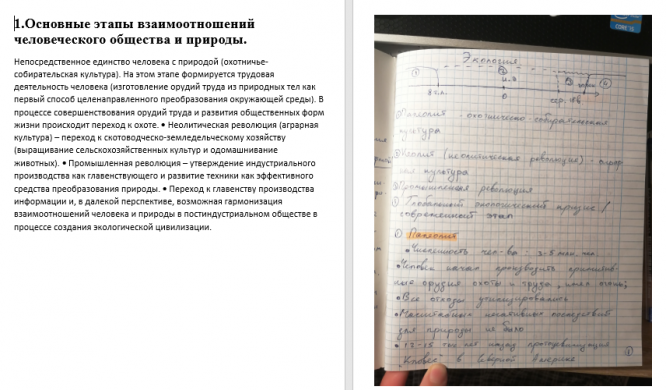 1.Основные этапы взаимоотношений
человеческого общества и природы.
Непосредственное единство человека с природой (охотничье-
собирательская культура). На этом этапе формируется трудовая
деятельность человека (изготовление орудий труда из природных тел как
первый способ целенаправленного преобразования окружающей среды). В
процессе совершенствования орудий труда и развития общественных форм
жизни происходит переход к охоте. • Неолитическая революция (аграрная
культура) – переход к скотоводческо-земледельческому хозяйству
(выращивание сельскохозяйственных культур и одомашнивание
животных). • Промышленная революция – утверждение индустриального
производства как главенствующего и развитие техники как эффективного
средства преобразования природы. • Переход к главенству производства
информации и, в далекой перспективе, возможная гармонизация
взаимоотношений человека и природы в постиндустриальном обществе в
процессе создания экологической цивилизации.
CORE i5
Экология
н.э.
0
сер. 18в
Палеолит - охотническо-собирательская
культура
Неолит (неолитическая революция) - аграр
ная культура
Промышленная революция
Глобальный экологический кризис /
современный этап
Палеолит
• Численность чел-ва - 3-5 млн. чел.
• Человек начал производить примитив-
ные орудия охоты и труда,
• Все отходы утилизировались
• Масштабных негативных последствий
для природы не было
• 12-15 тыс лет назад
"Кловис" в Северной Америке